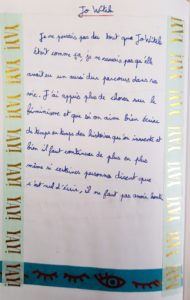 Jo Witek
Je ne pensais pas du tout que Jo Witek
était comme ça, je ne savais pas qu'elle
avait eu un aussi dur parcours dans sa
vie. J'ai appris plus de choses sur le
féminisme et que si on aime bien écrire
de temps en temps des histoires qu'on invente et
bien il faut continuer de plus en plus
même si certaines personnes disent que
c'est nul d'écrire, il ne faut pas avoir honte
YAY! YAY! YAY! YAY! YAY! YAY!
YAY! YAY! YAY! YAY! YAY! YAY!